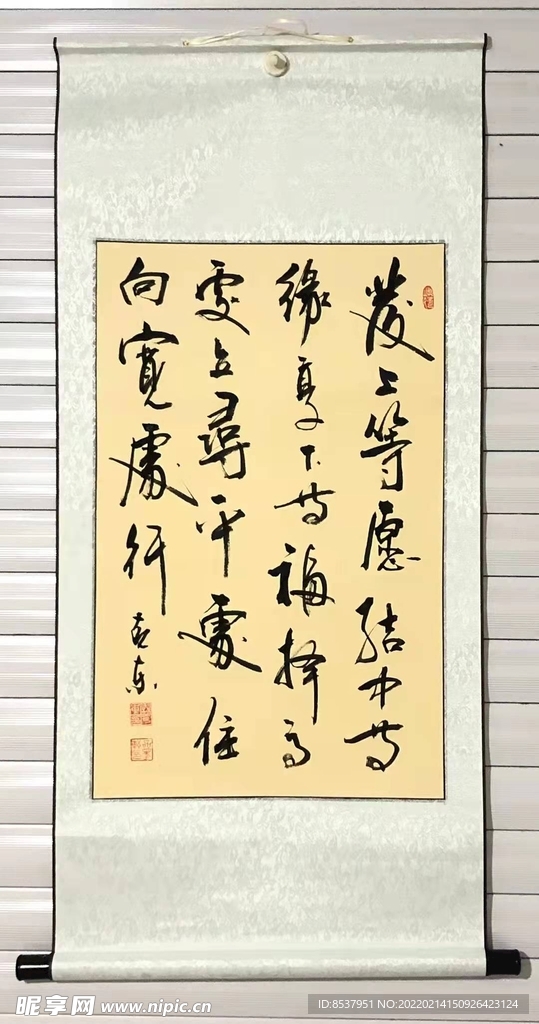 發上等愿結中等
緣享下等福择高
處立尋平處住
向寬處行
昵享网 www.nipic.cn
ID:8537951 NO:20220214150926423124